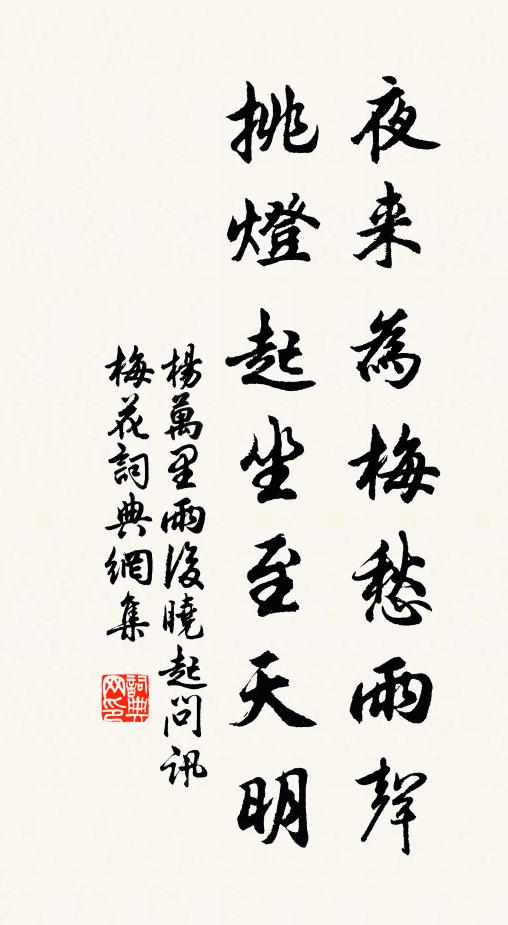 夜来為梅愁雨聲
挑燈起坐至天明
楊萬里雨後曉起問訊
梅花詞典網集
詞典
网印